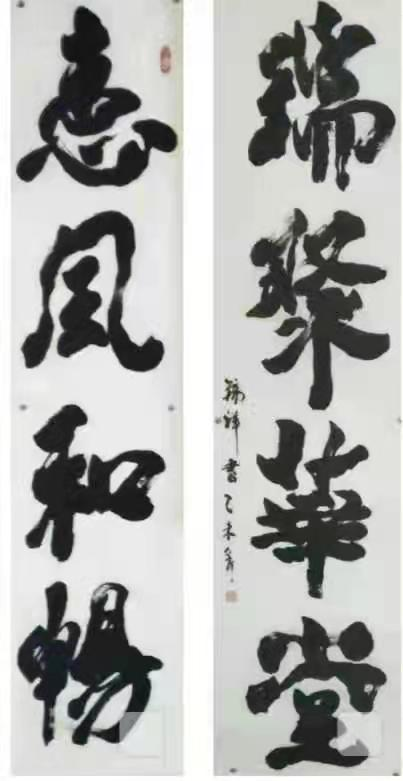 惠風和暢
瑞聚華堂
書乙未年